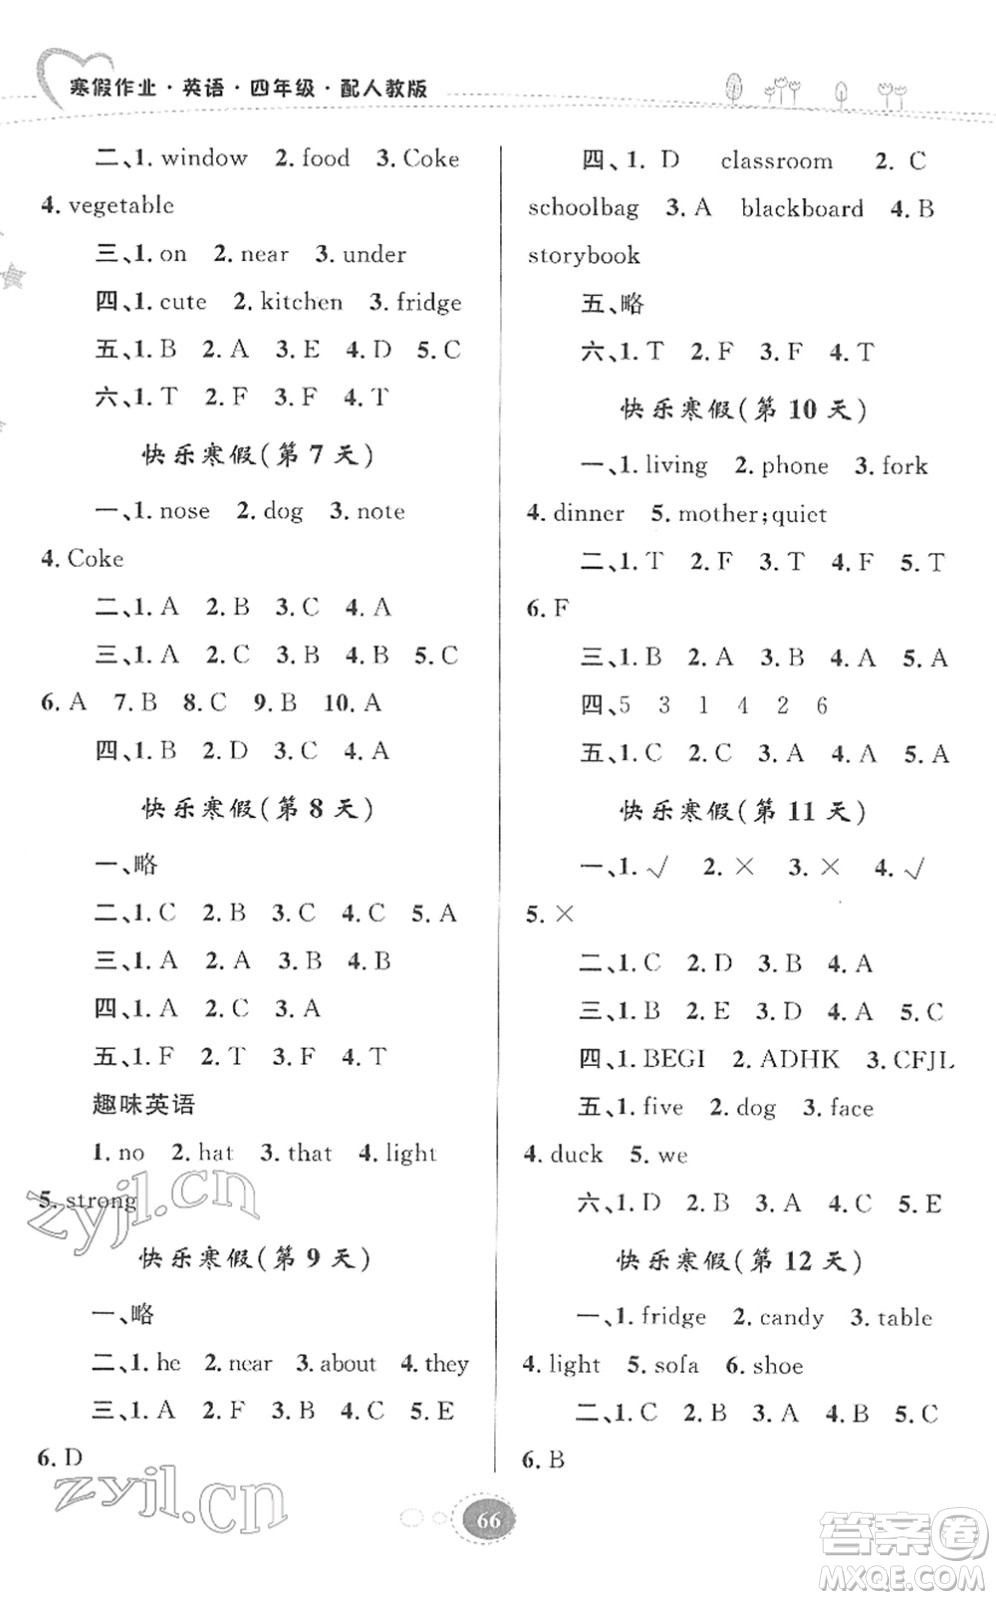 寒假作业·英语·四年级·配人教版
二、1. window 2. food 3. Coke
4. vegetable
三、1. on 2. near 3. under
四、1. cute 2. kitchen 3. fridge
五、1. B 2. A 3. E 4. D 5. C
六、1. T 2. F 3. F 4. T
快乐寒假(第7天)
一、1. nose 2. dog 3. note
4. Coke
二、1. A 2. B 3. C 4. A
三、1. A 2. C 3. B 4. B 5. C
6. A 7. B 8. C 9. B 10. A
四、1. B 2. D 3. C 4. A
快乐寒假(第8天)
一、略
二、1. C 2. B 3. C 4. C 5. A
三、1. A 2. A 3. B 4. B
四、1. A 2. C 3. A
五、1. F 2. T 3. F 4. T
趣味英语
1. no 2. hat 3. that 4. light
5. strong
快乐寒假(第9天)
一、略
二、1. he 2. near 3. about 4. they
三、1. A 2. F 3. B 4. C 5. E
6. D
四、1. D classroom 2. C
schoolbag 3. A blackboard 4. B
storybook
五、略
六、1. T 2. F 3. F 4. T
快乐寒假(第10天)
一、1. living 2. phone 3. fork
4. dinner 5. mother;quiet
二、1. T 2. F 3. T 4. F 5. T
6. F
三、1. B 2. A 3. B 4. A 5. A
四、5 3 1 4 2 6
五、1. C 2. C 3. A 4. A 5. A
快乐寒假(第11天)
一、1. √ 2. × 3. × 4. √
5. ×
二、1. C 2. D 3. B 4. A
三、1. B 2. E 3. D 4. A 5. C
四、1. BEGI 2. ADHK 3. CFJL
五、1. five 2. dog 3. face
4. duck 5. we
六、1. D 2. B 3. A 4. C 5. E
快乐寒假(第12天)
一、1. fridge 2. candy 3. table
4. light 5. sofa 6. shoe
二、1. C 2. B 3. A 4. B 5. C
6. B
66
zyjl.cn
zyjl.cn
答案卷
MXQE.COM